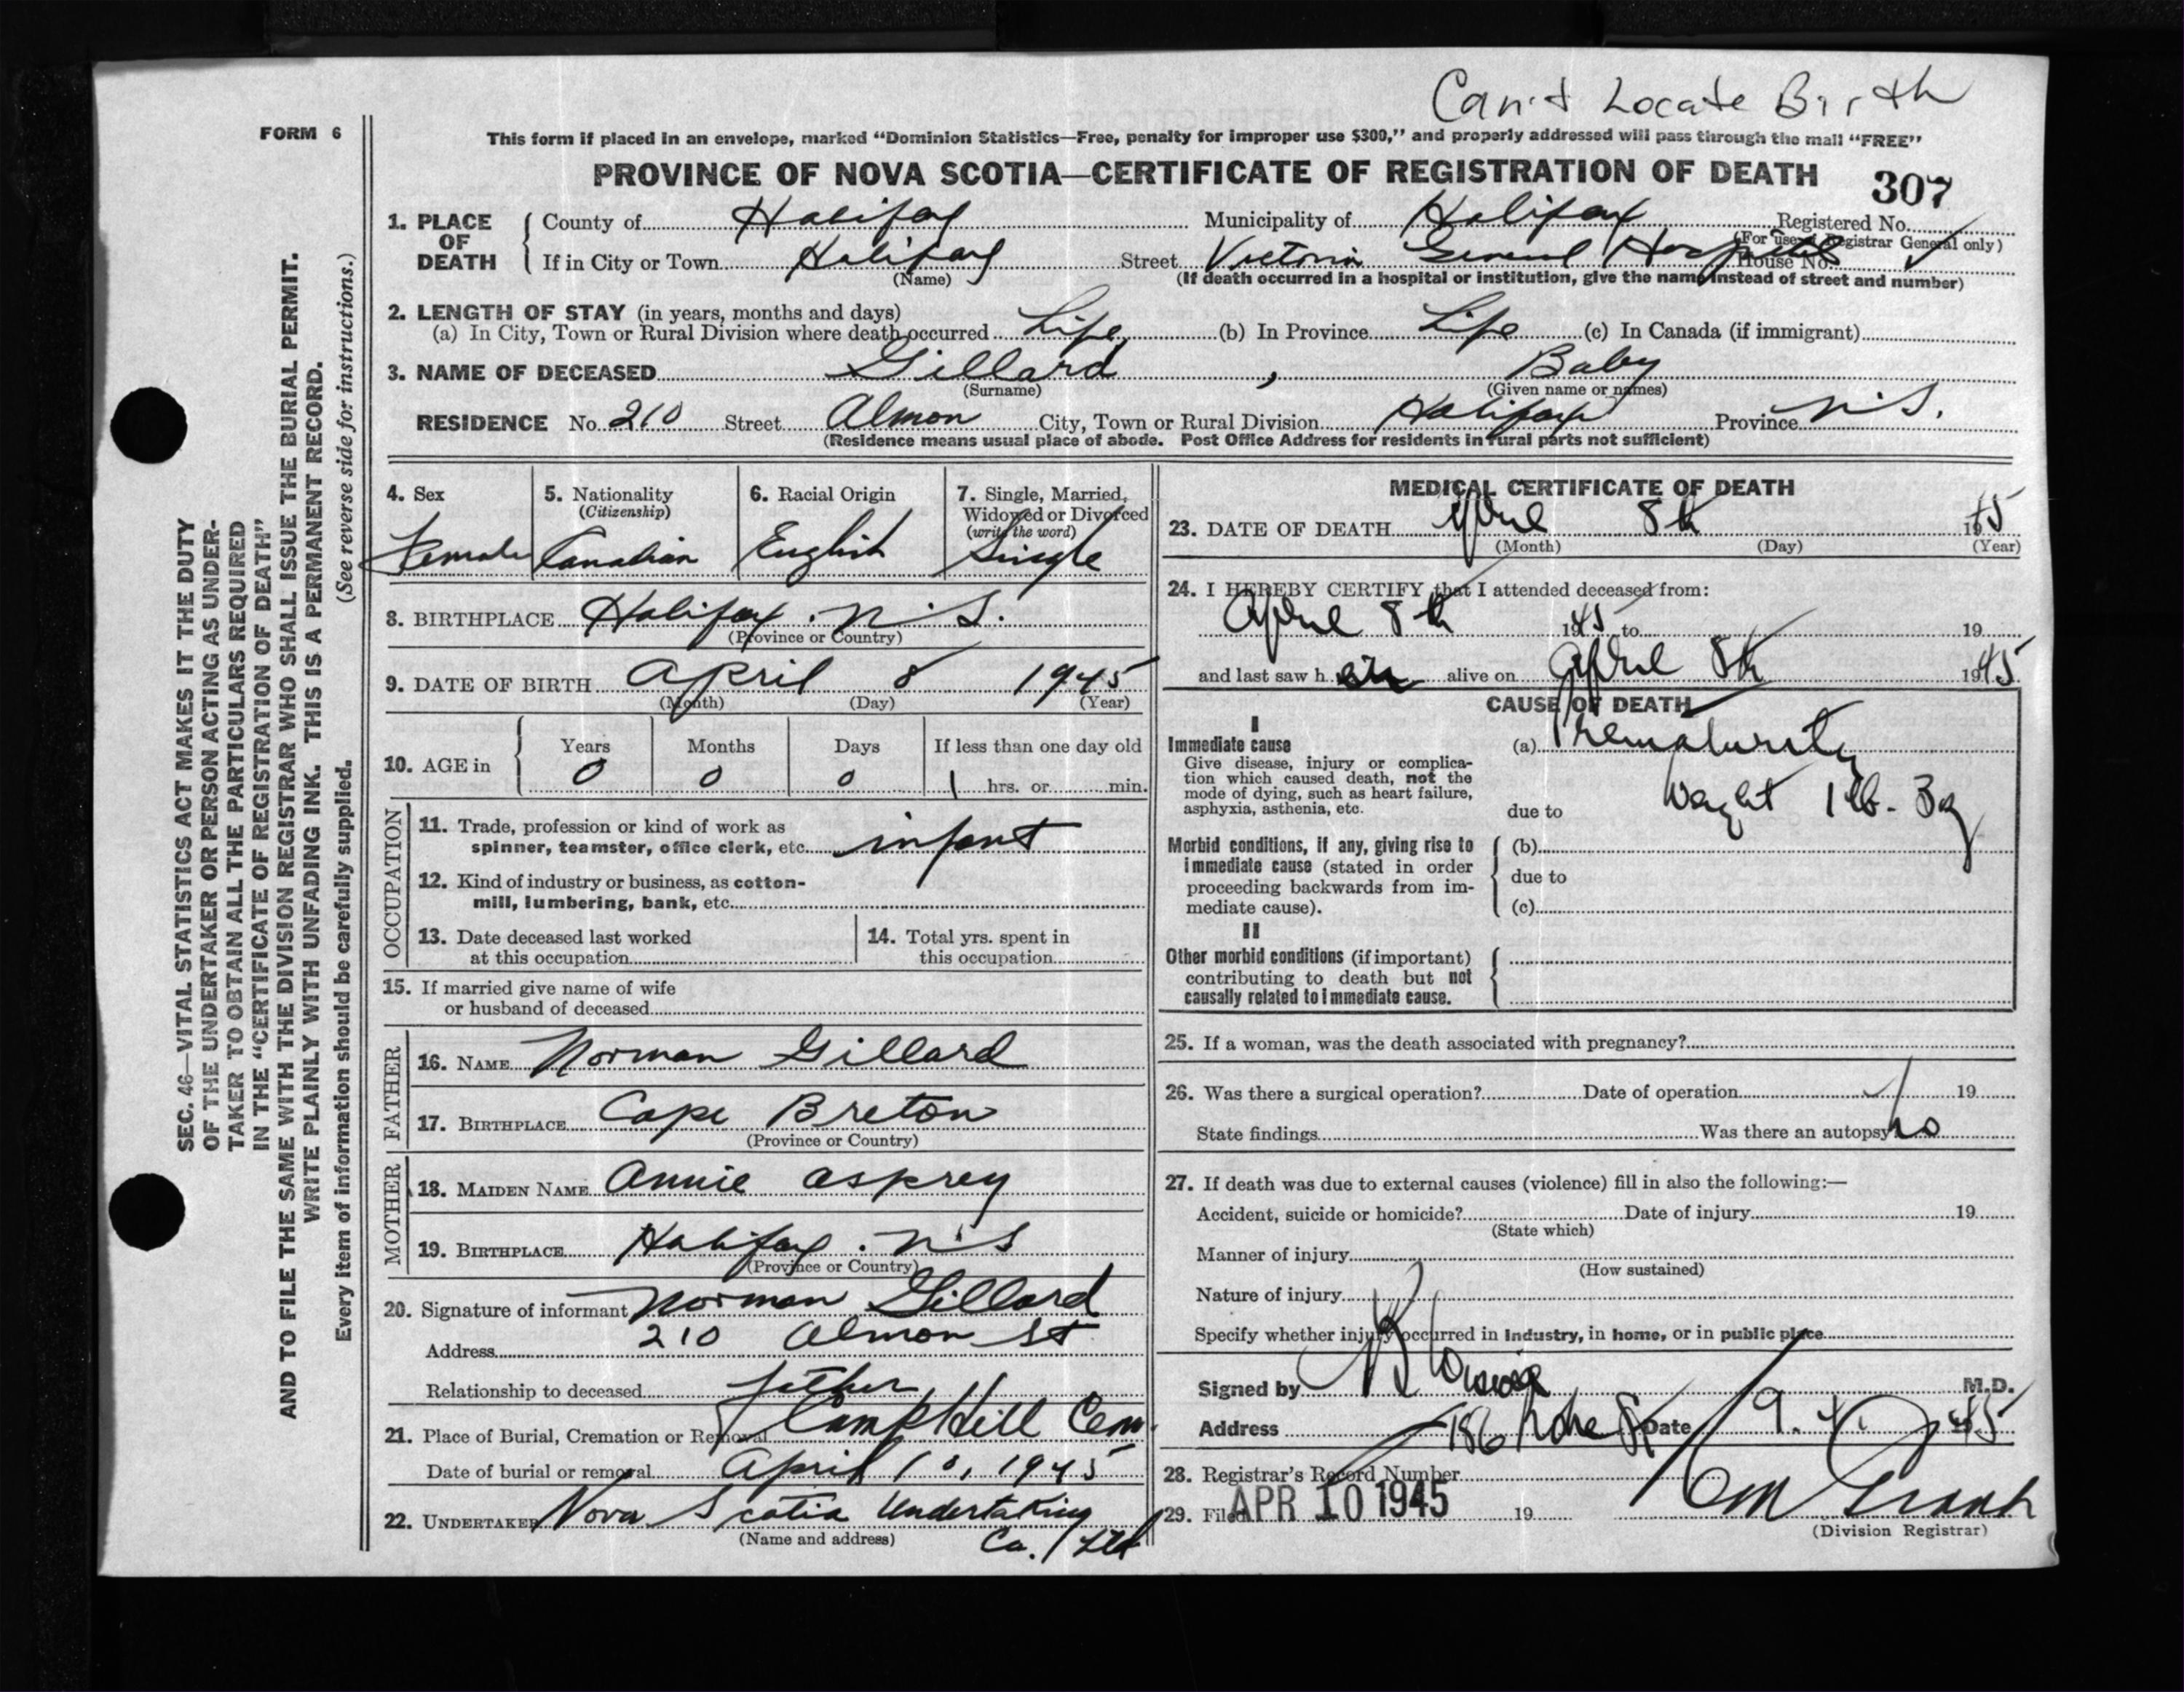 Can't Locate Birth
FORM 6
This form if placed in an envelope, marked “Dominion Statistics—Free, penalty for improper use $300,” and properly addressed will pass through the mail “FREE”
PROVINCE OF NOVA SCOTIA—CERTIFICATE OF REGISTRATION OF DEATH
307
1. PLACE OF DEATH
County of Halifax Municipality of Halifax Registered No.
(For use of Registrar General only)
If in City or Town Halifax Street Victoria General Hospital House No.
(Name) (If death occurred in a hospital or institution, give the name instead of street and number)
2. LENGTH OF STAY (in years, months and days)
(a) In City, Town or Rural Division where death occurred Life (b) In Province Life (c) In Canada (if immigrant)
3. NAME OF DECEASED Gillard, Baby
(Surname) (Given name or names)
RESIDENCE No. 210 Street Almon City, Town or Rural Division Halifax Province N.S.
(Residence means usual place of abode. Post Office Address for residents in rural parts not sufficient)
4. Sex
Female
5. Nationality
(Citizenship)
Canadian
6. Racial Origin
English
7. Single, Married,
Widowed or Divorced
(write the word)
Single
8. BIRTHPLACE Halifax. N.S.
(Province or Country)
9. DATE OF BIRTH April 8 1945
(Month) (Day) (Year)
10. AGE in Years Months Days If less than one day old
0 0 0 1 hrs. or min.
OCCUPATION
11. Trade, profession or kind of work as
spinner, teamster, office clerk, etc. infant
12. Kind of industry or business, as cotton-
mill, lumbering, bank, etc.
13. Date deceased last worked
at this occupation
14. Total yrs. spent in
this occupation
15. If married give name of wife
or husband of deceased
FATHER
16. NAME Norman Gillard
17. BIRTHPLACE Cape Breton
(Province or Country)
MOTHER
18. MAIDEN NAME Annie Asprey
19. BIRTHPLACE Halifax. N.S
(Province or Country)
20. Signature of informant Norman Gillard
Address 210 Almon St
Relationship to deceased father
21. Place of Burial, Cremation or Removal Camp Hill Cem.
Date of burial or removal April 10, 1945
22. UNDERTAKER Nova Scotia Undertaking
(Name and address) Co. Ltd
MEDICAL CERTIFICATE OF DEATH
23. DATE OF DEATH April 8th 1945
(Month) (Day) (Year)
24. I HEREBY CERTIFY that I attended deceased from:
April 8th 1945 to 19
and last saw h er alive on April 8th 1945
CAUSE OF DEATH
I
Immediate cause
Give disease, injury or complica-
tion which caused death, not the
mode of dying, such as heart failure,
asphyxia, asthenia, etc.
(a) Prematurity
due to Weight 1 lb. 3
Morbid conditions, if any, giving rise to
immediate cause (stated in order
proceeding backwards from im-
mediate cause).
(b)
due to
(c)
II
Other morbid conditions (if important)
contributing to death but not
causally related to immediate cause.
25. If a woman, was the death associated with pregnancy?
26. Was there a surgical operation? Date of operation 19
State findings Was there an autopsy no
27. If death was due to external causes (violence) fill in also the following:—
Accident, suicide or homicide? Date of injury 19
(State which)
Manner of injury
(How sustained)
Nature of injury
Specify whether injury occurred in industry, in home, or in public place
Signed by M.D.
Address 186 Date 9. 4. 1945
28. Registrar's Record Number
29. Filed APR 10 1945 19
(Division Registrar)
SEC. 46—VITAL STATISTICS ACT MAKES IT THE DUTY
OF THE UNDERTAKER OR PERSON ACTING AS UNDER-
TAKER TO OBTAIN ALL THE PARTICULARS REQUIRED
IN THE “CERTIFICATE OF REGISTRATION OF DEATH”
AND TO FILE THE SAME WITH THE DIVISION REGISTRAR WHO SHALL ISSUE THE BURIAL PERMIT.
WRITE PLAINLY WITH UNFADING INK. THIS IS A PERMANENT RECORD.
Every item of information should be carefully supplied. (See reverse side for instructions.)